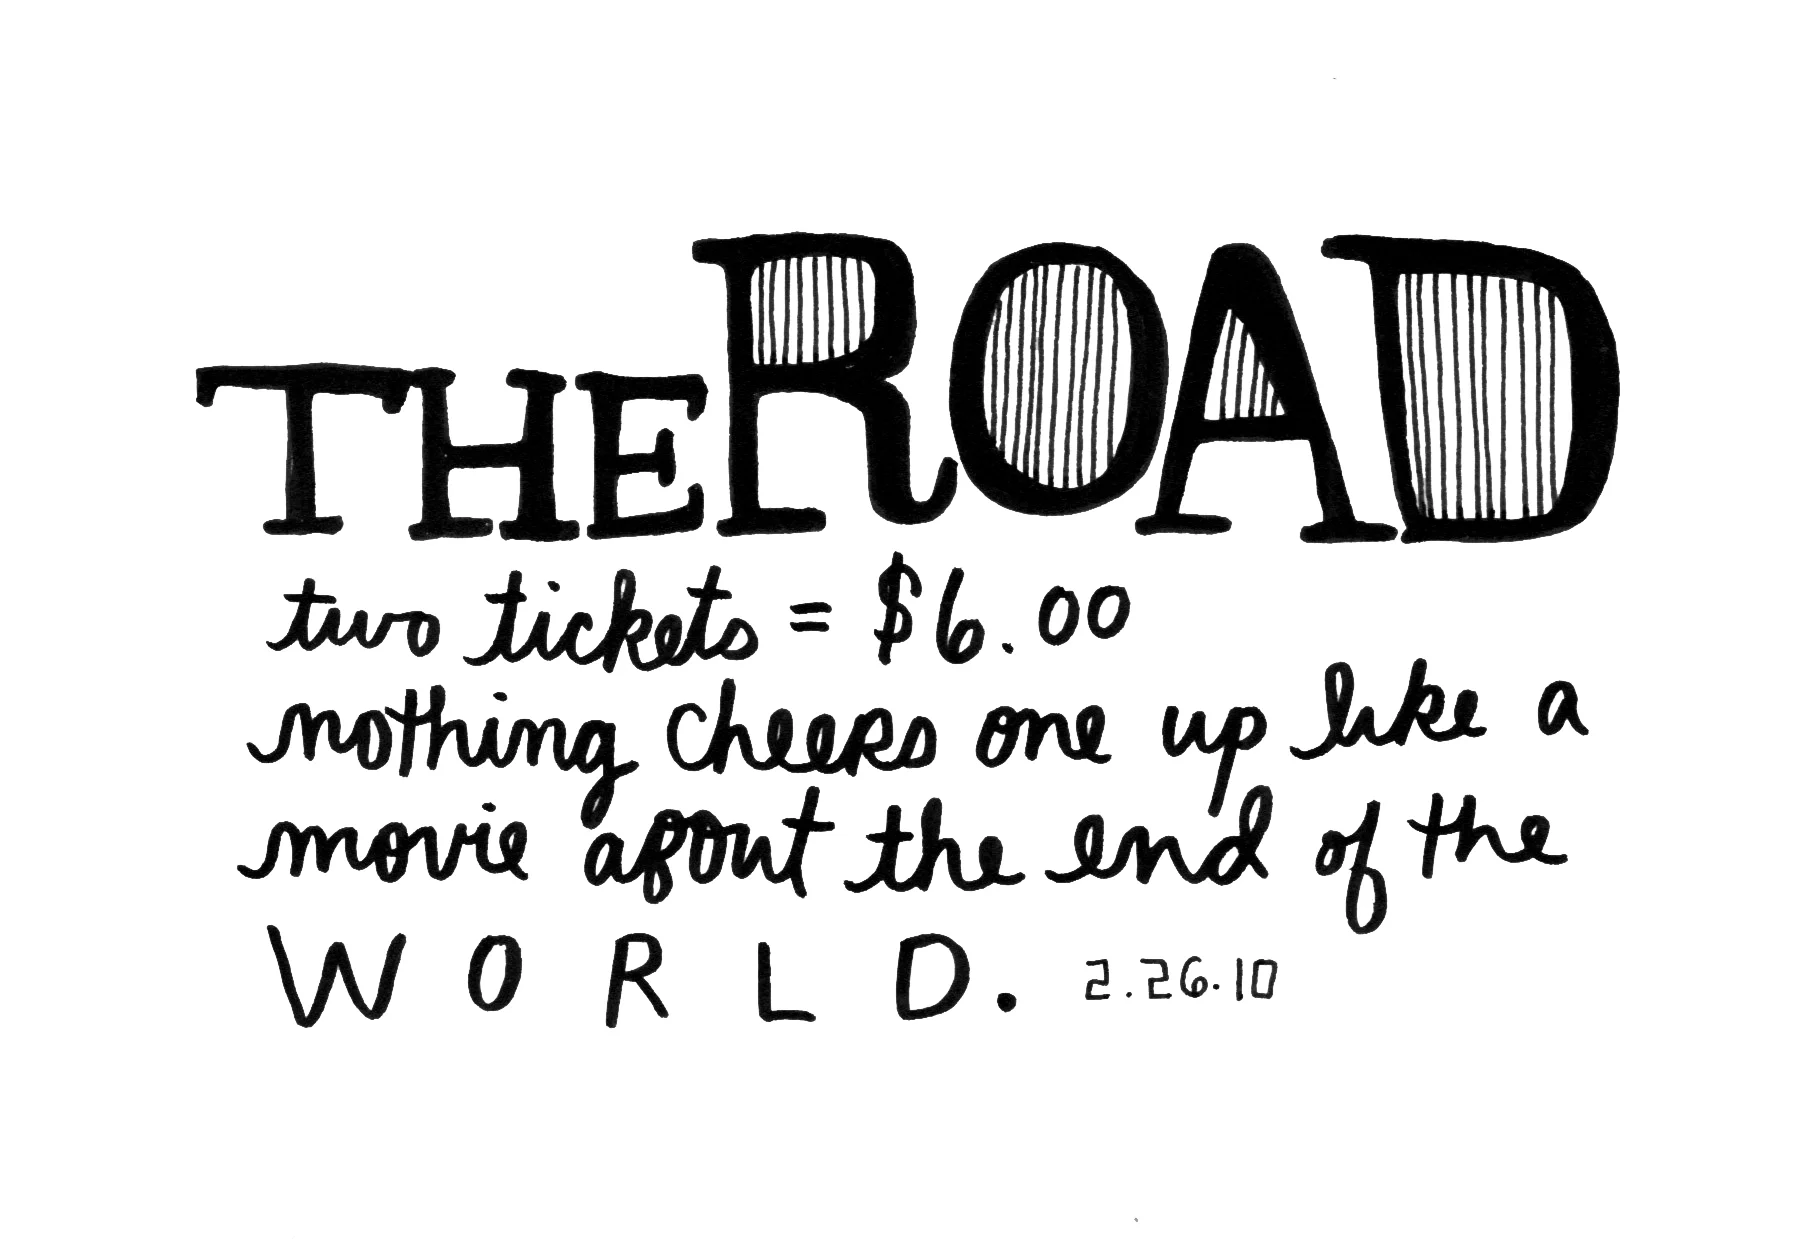 THE ROAD
two tickets = $6.00
nothing cheers one up like a
movie about the end of the
WORLD. 2.26.10